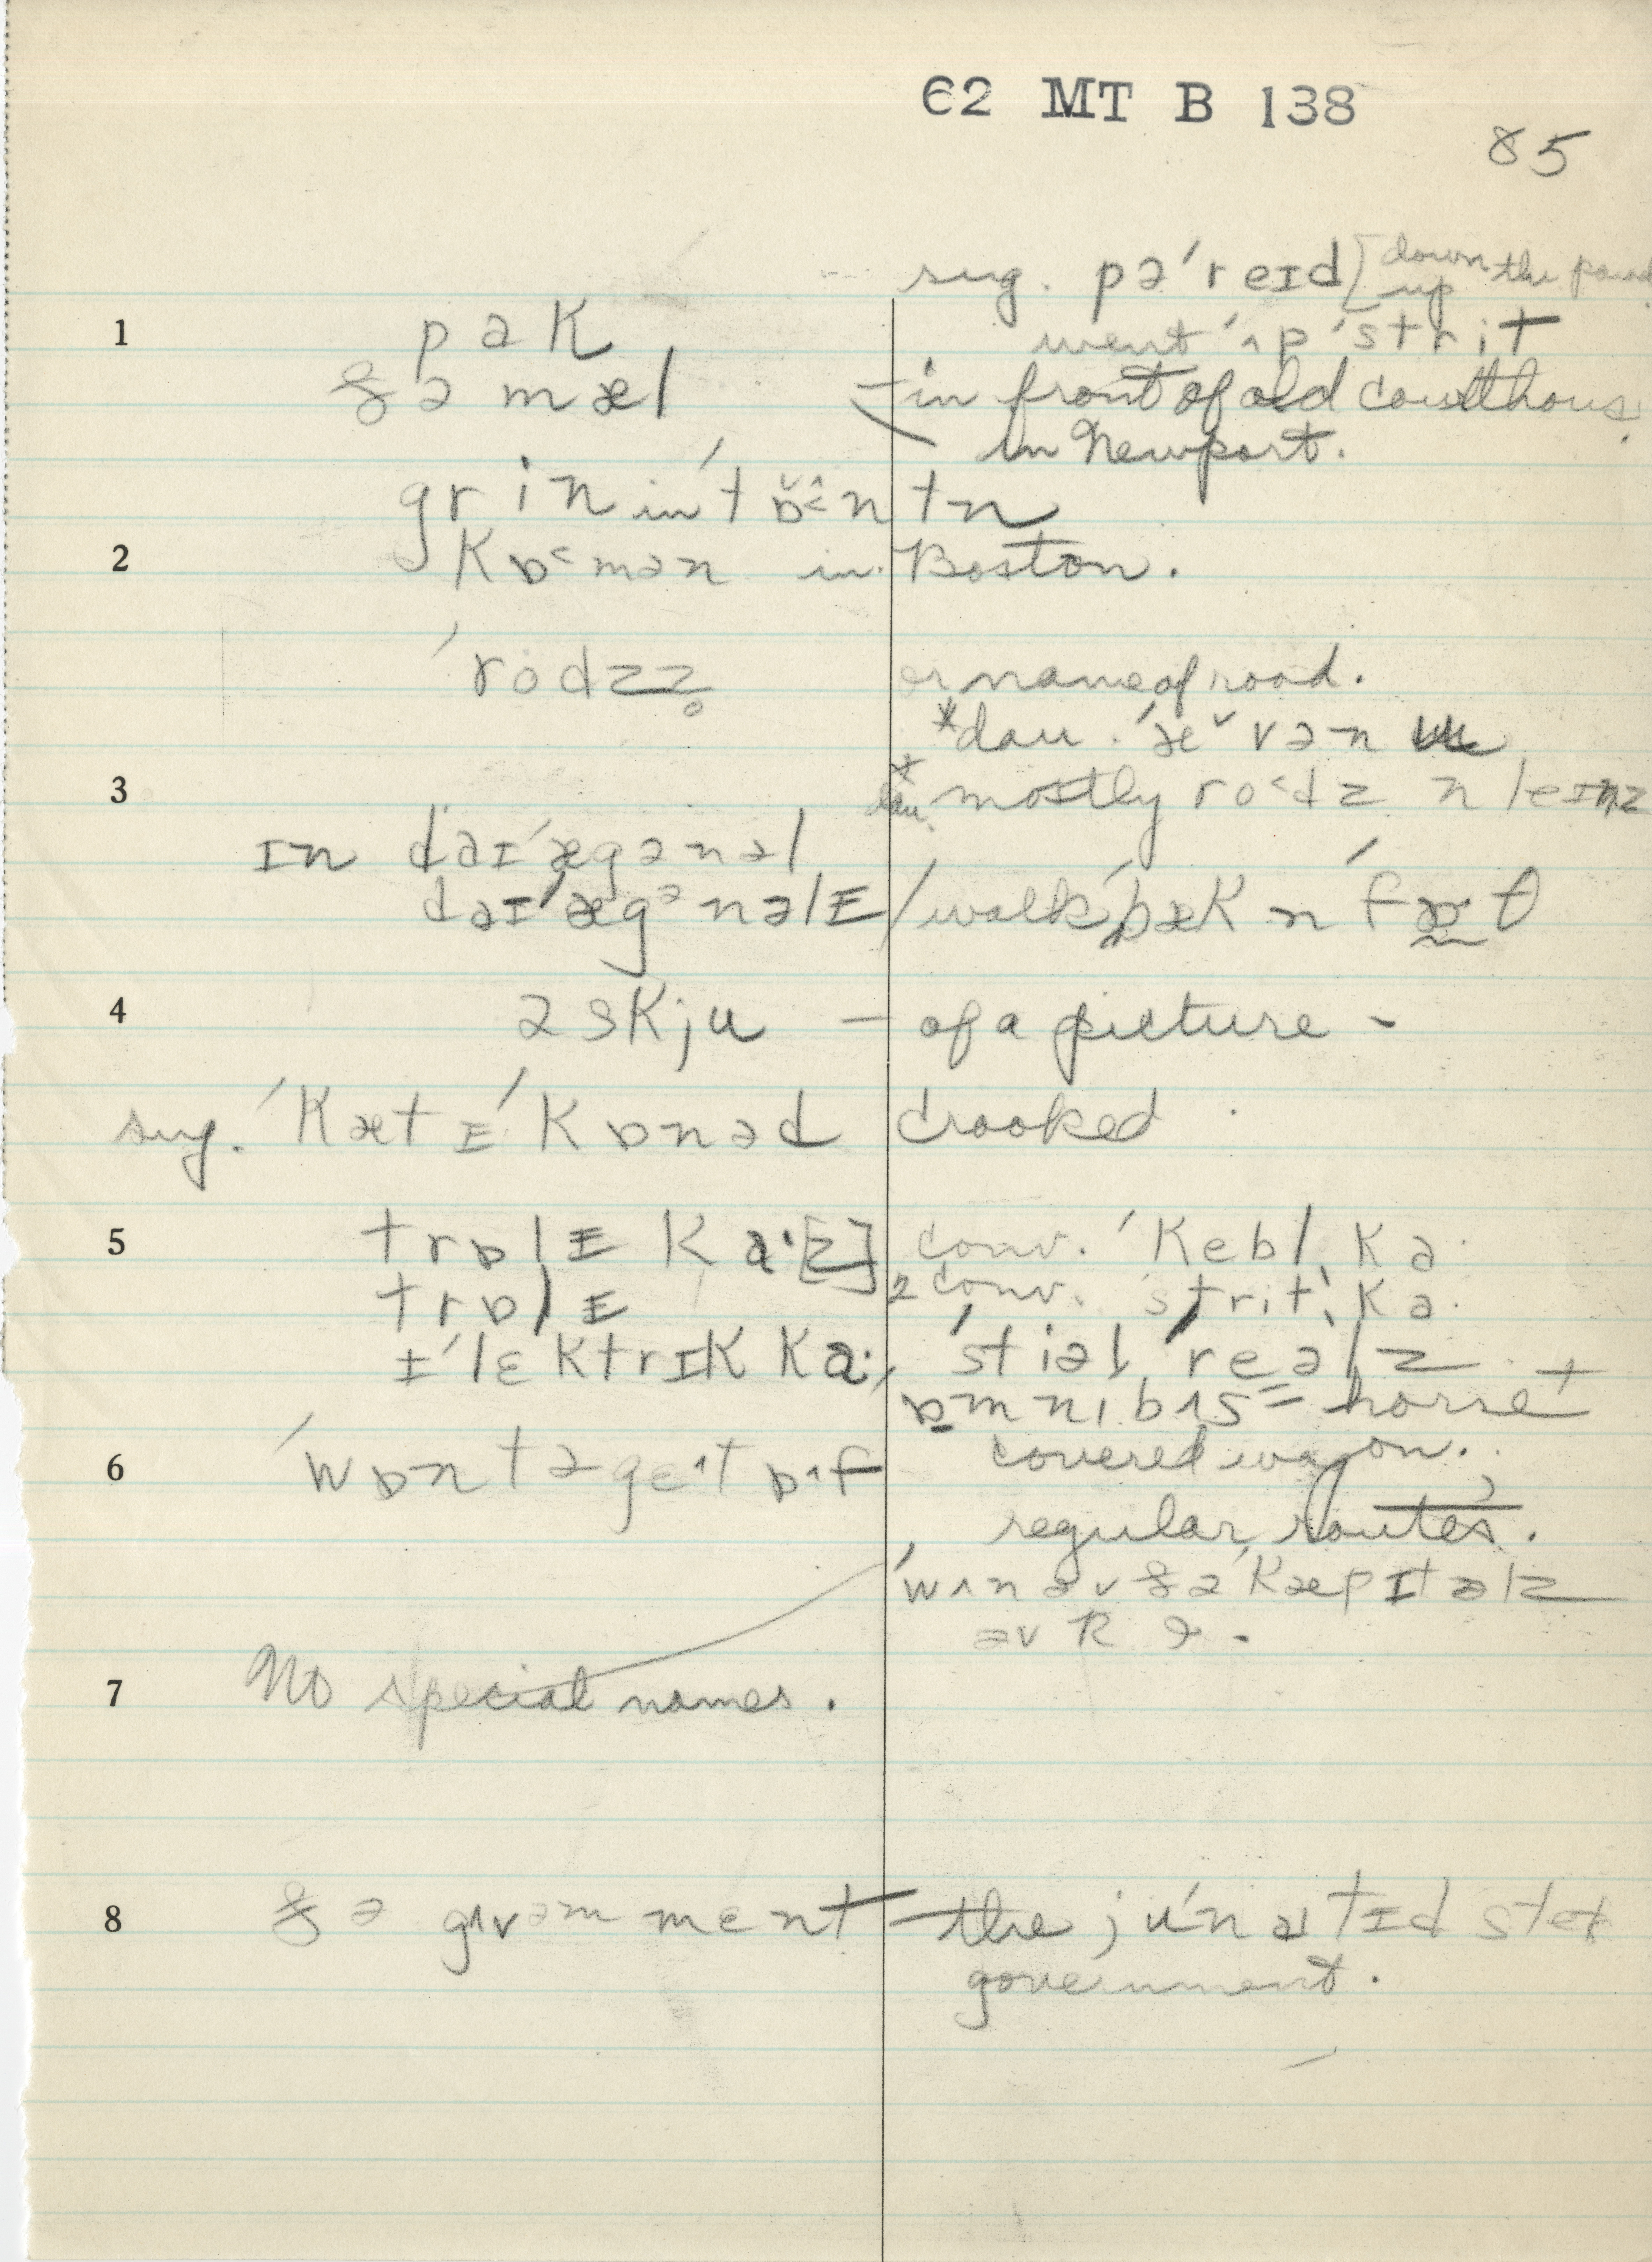 62 MT B 138
85
sug. pə'reɪd [down the parad
up
1 pak went 'ʌp 'strit
ðə mæl – in front of old courthouse
in Newport.
grin in 'tɒ̆̂<ntn
2 Kɒ<mən in Boston.
'rodzz̥ or name of road.
*dau. 'æ˅vən
3 * dau. mostly ro<dz n leɪnz
ɪn daɪ'ægənəl
daɪ'ægənəlɪ / walk 'bæk n 'fɒθ
4 əskju – of a picture –
sug. 'Kætɪ'Kɒnəd crooked
5 trɒlɪ Ka·[z] conv. 'Kebl̩ Ka·
trɒlɪ 2 conv. 'strit ˌKa·
ɪ'lɛktrɪk Ka·, 'stiəl 'reəlz +
ɒmnɪbʌs = horse +
6 'wɒnt ə get ɒf covered wagon.
regular routes.
'wʌn əv ðə 'Kæpɪtəlz
əv R ə.
7 No special names.
8 ðə gʌvəmment – the ju'naɪtɪd stet
government.